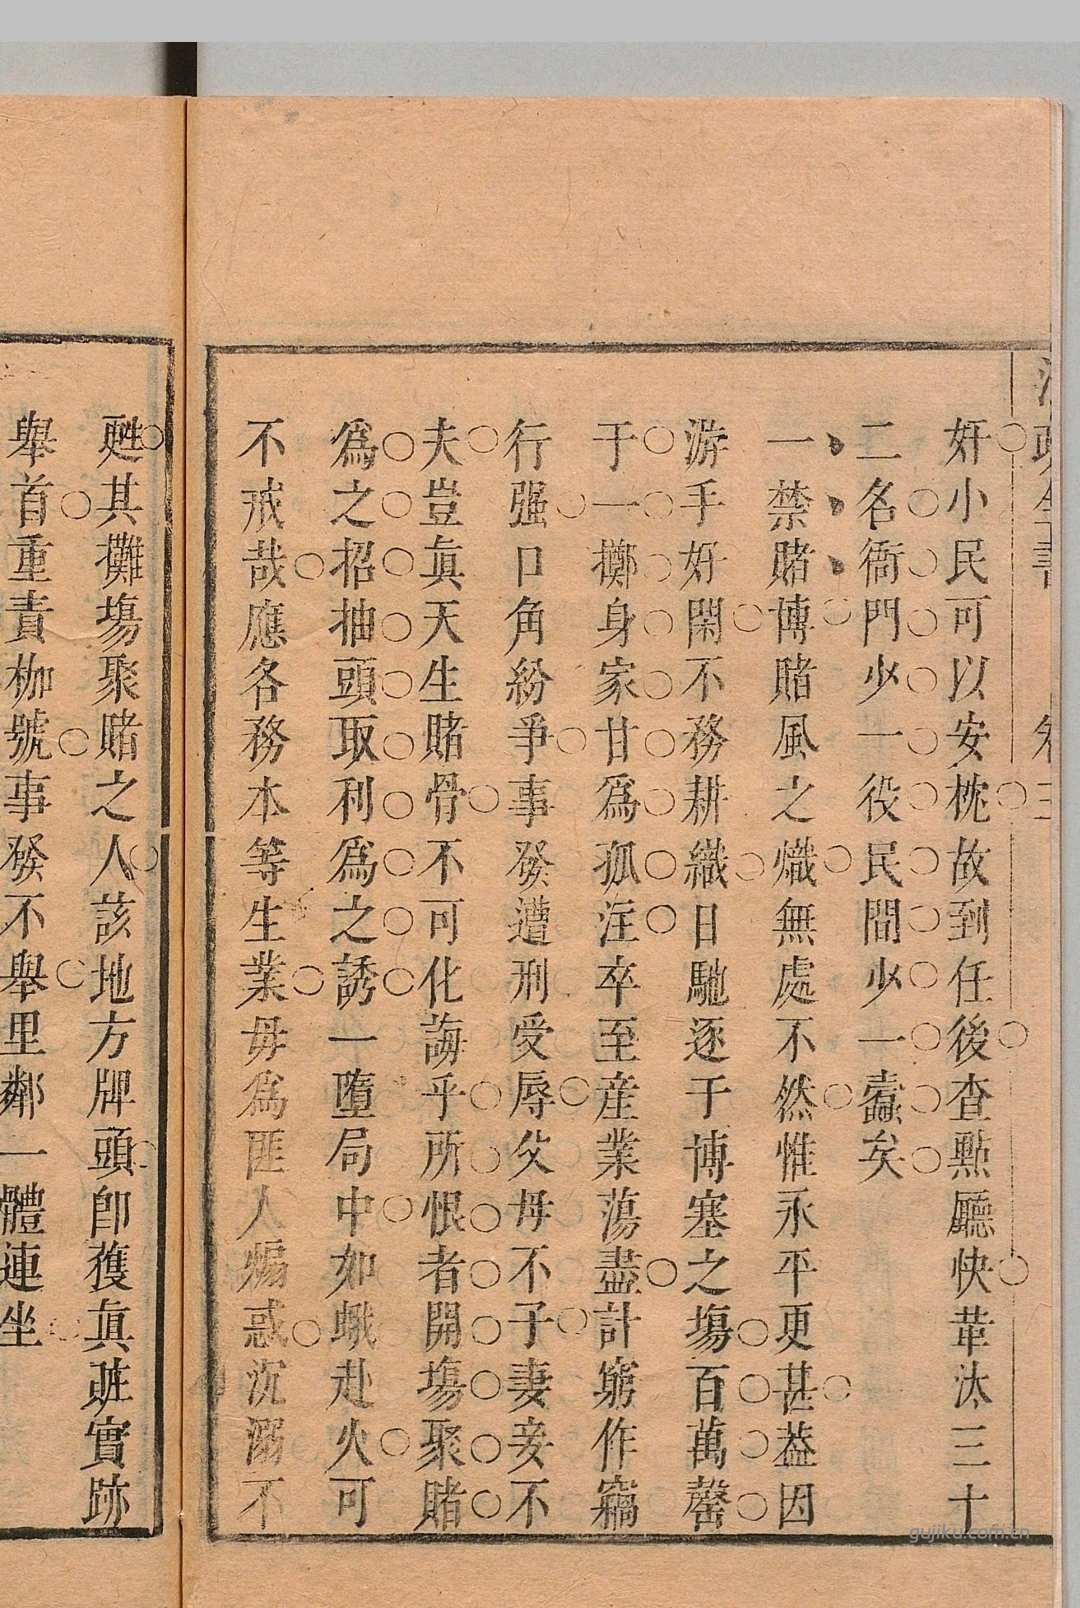 奸小民可以安枕故到任後查點廳快革汰三十
二名衙門少一役民間少一蠧矣
一禁賭博賭風之熾無處不然惟永平更甚葢因
游手好閑不務耕織日馳逐于博塞之塲百萬罄
于一擲身家甘爲孤注卒至産業蕩盡計窮作竊
行强口角紛爭事發遭刑受辱父母不子妻妾不
夫豈眞天生賭骨不可化誨乎所恨者開塲聚賭
爲之招抽頭取利爲之誘一墮局中如蛾赴火可
不戒哉應各務本等生業毋爲匪人煽惑沉溺不
甦其攤塲聚賭之人該地方牌頭卽獲眞贓實跡
舉首重責枷號事發不舉里鄰一體連坐
卷三
gujiku.com.cn